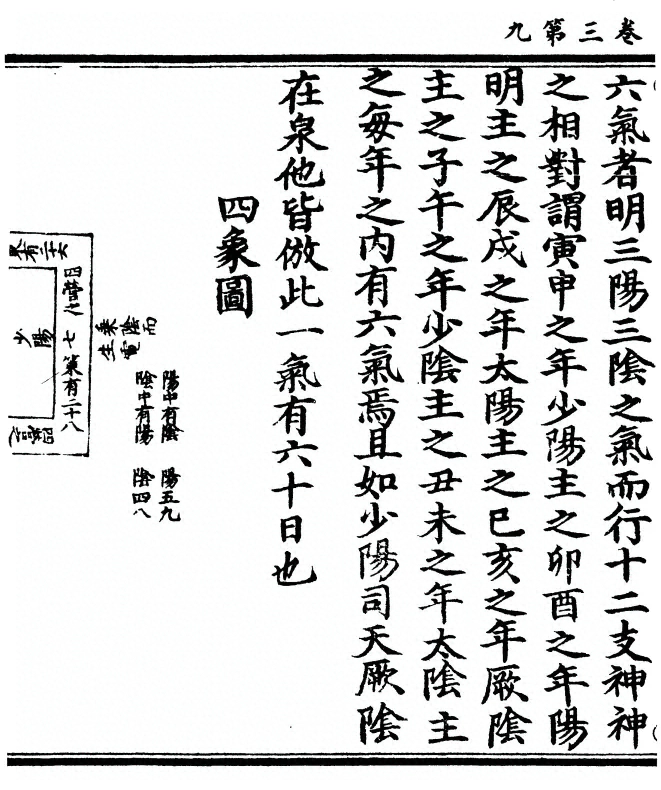 卷三第九
六氣者明三陽三陰之氣而行十二支神神
之相對謂寅申之年少陽主之卯酉之年陽
明主之辰戌之年太陽主之巳亥之年厥陰
主之子午之年少陰主之丑未之年太陰主
之每年之內有六氣焉且如少陽司天厥陰
在泉他皆倣此一氣有六十日也
四象圖
陽中有陰 陽五九
陰中有陽 陰四八
而
陰
乘
生
四營之七 策有二十八
少陽